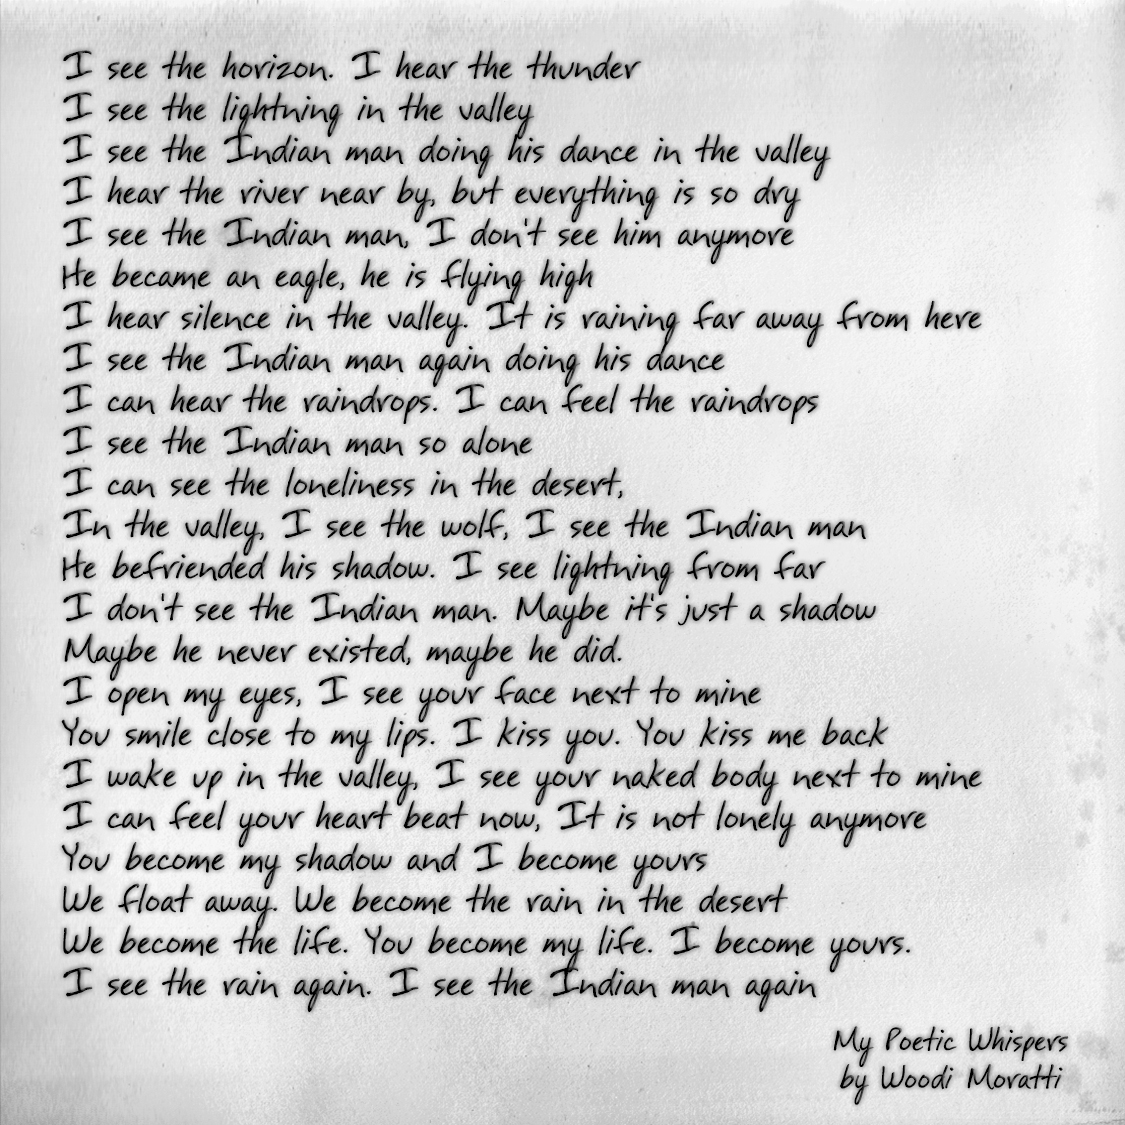 I see the horizon. I hear the thunder
I see the lightning in the valley
I see the Indian man doing his dance in the valley
I hear the river near by, but everything is so dry
I see the Indian man, I don't see him anymore
He became an eagle, he is flying high
I hear silence in the valley. It is raining far away from here
I see the Indian man again doing his dance
I can hear the raindrops. I can feel the raindrops
I see the Indian man so alone
I can see the loneliness in the desert,
In the valley, I see the wolf, I see the Indian man
He befriended his shadow. I see lightning from far
I don't see the Indian man. Maybe it's just a shadow
Maybe he never existed, maybe he did.
I open my eyes, I see your face next to mine
You smile close to my lips. I kiss you. You kiss me back
I wake up in the valley, I see your naked body next to mine
I can feel your heart beat now, It is not lonely anymore
You become my shadow and I become yours
We float away. We become the rain in the desert
We become the life. You become my life. I become yours.
I see the rain again. I see the Indian man again
My Poetic Whispers
by Woodi Moratti